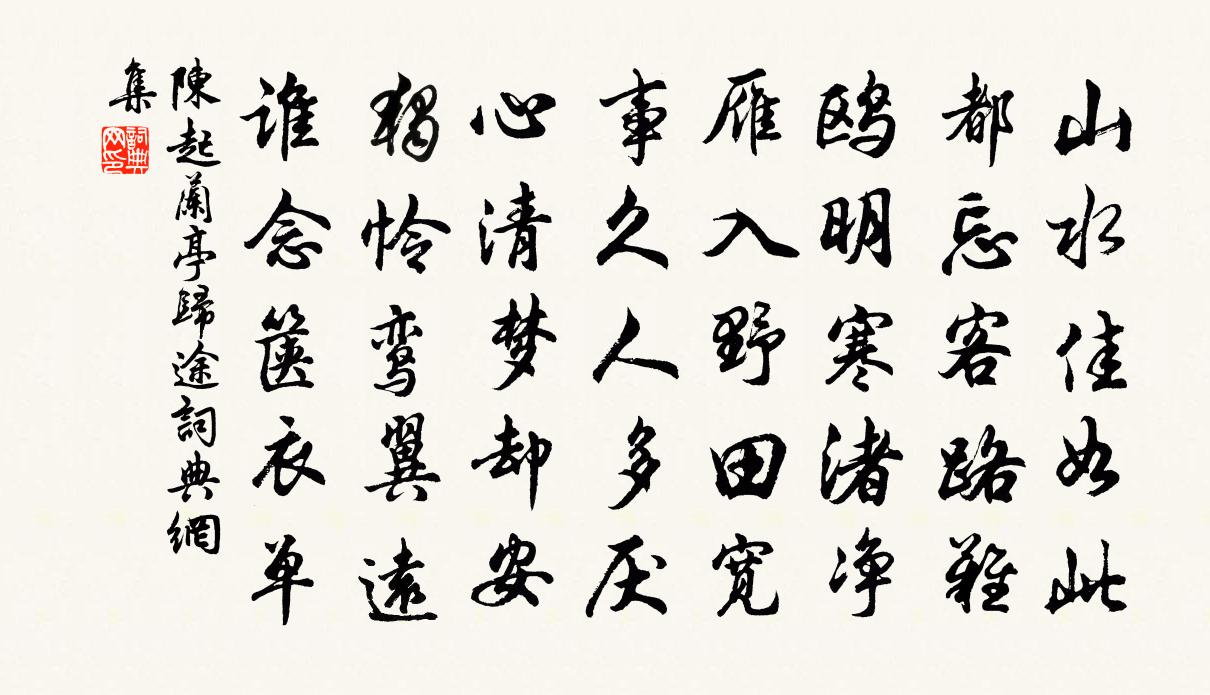 山水佳如此
都忘客路难
鸥明寒渚净
雁入野田宽
事久人多厌
心清梦却安
独怜鸾翼远
谁念箧衣单
陳起蘭亭歸途詞典網
集
詞典网印